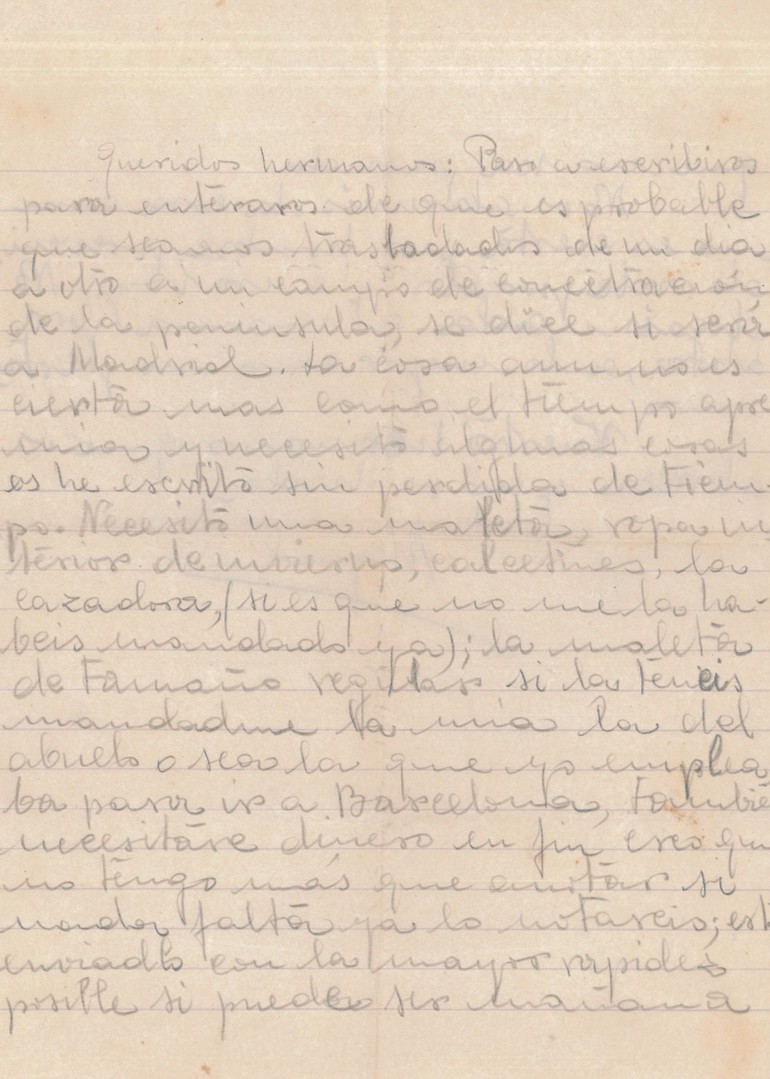 Queridos hermanos: Paso a escribiros
para enteraros de que es probable
que seamos trasladados de un dia
a otro a un campo de concetración
de la peninsula, se dice si será
a Madrid. La cosa aun no es
cierta mas como el tiempo apre
mia y necesito algunas cosas
os he escrito sin perdida de tiem-
po. Necesito una maleta, ropa in
terior de invierno, calcetines, la
cazadora, (si es que no me la ha-
beis mandado ya); la maleta
de tamaño regular si la teneis
mandadme la mia la del
abuelo o sea la que yo emplea
ba para ir a Barcelona, Tambié
necesitare dinero en fin creo que
no tengo más que anotar si
nada falta ya lo notareis; est
enviadlo con la mayor rapidez
posible si puede ser mañana